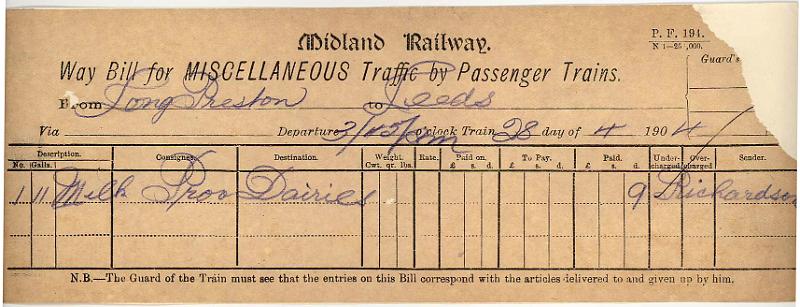 Midland Railway.
P. F. 194.
N 1—25,000.
Way Bill for MISCELLANEOUS Traffic by Passenger Trains.
Guard's
From Long Preston to Leeds
Via Departure 3/45 pm o'clock Train 28 day of 4 1904
Description. Consignee. Destination. Weight. Rate. Paid on. To Pay. Paid. Under-charged Over-charged Sender.
No. Galls. Cwt. qr. lbs. £ s. d. £ s. d. £ s. d.
1 11 Milk Prov Dairies 9 Richardson
N.B.—The Guard of the Train must see that the entries on this Bill correspond with the articles delivered to and given up by him.